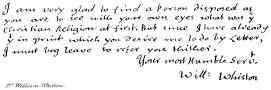 I am very glad to find a Person disposed as
you are to see with your own eyes what was yᵉ
Christian Religion at first. But since I have already
in print which you desire me to do by Letter,
I must beg leave to refer you thither.
Your most Humble Servᵗ
Will: Whiston
Dr William Whiston.